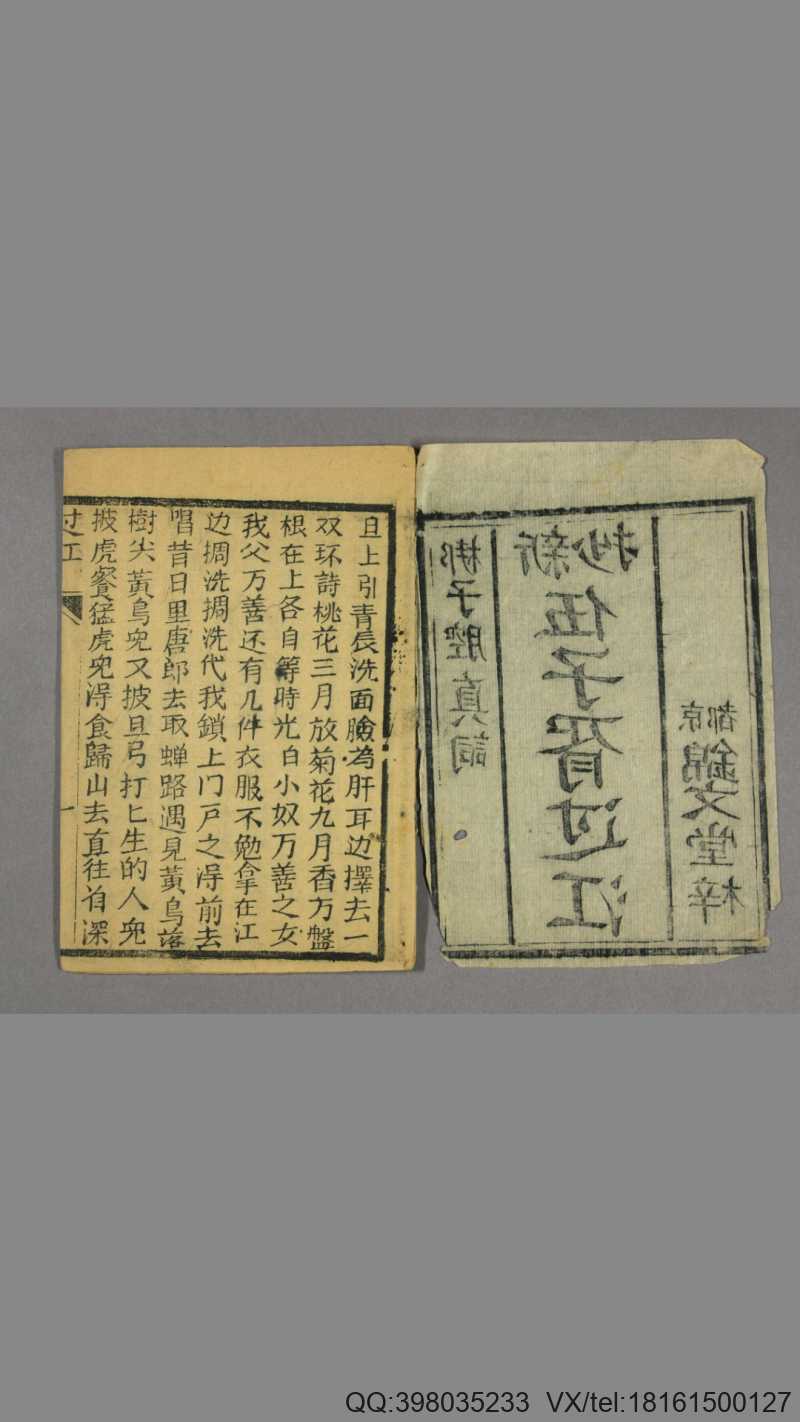 新抄
伍子胥过江
梆子腔真詞
京都錦文堂梓
旦上引青晨洗面臉為肝耳边擇去一
双环詩桃花三月放菊花九月香万盤
根在上各自等時光白小奴万善之女
我父万善还有几件衣服不勉拿在江
边摑洗摑洗代我鎖上门戸之得前去
唱昔日里唐郎去取蝉路遇見黃鳥落
樹尖黃鳥兜又披旦弓打匕生的人兜
披虎餐猛虎兜得食歸山去直往省深
过江
一
QQ:398035233 VX/tel:18161500127